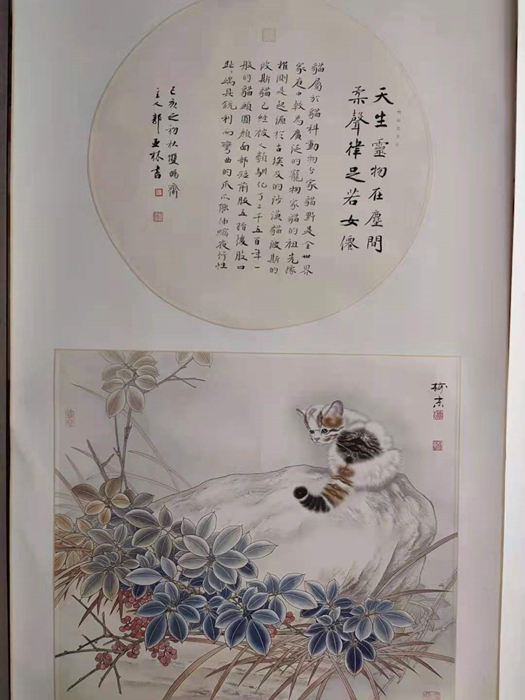 天生靈物在塵間
柔聲律足若女僊
貓屬於貓科動物分家貓野是全世界
家庭中較為廣泛的寵物家貓的祖先據
推測是起源於古埃及的沙漠貓波斯的
波斯貓已經被人類馴化了三千五百年一
般的貓頭圓顏面部短前肢五指後肢四
趾端具銳利而彎曲的爪爪能伸縮夜行性
己亥之初秋
主人郭亚栋書